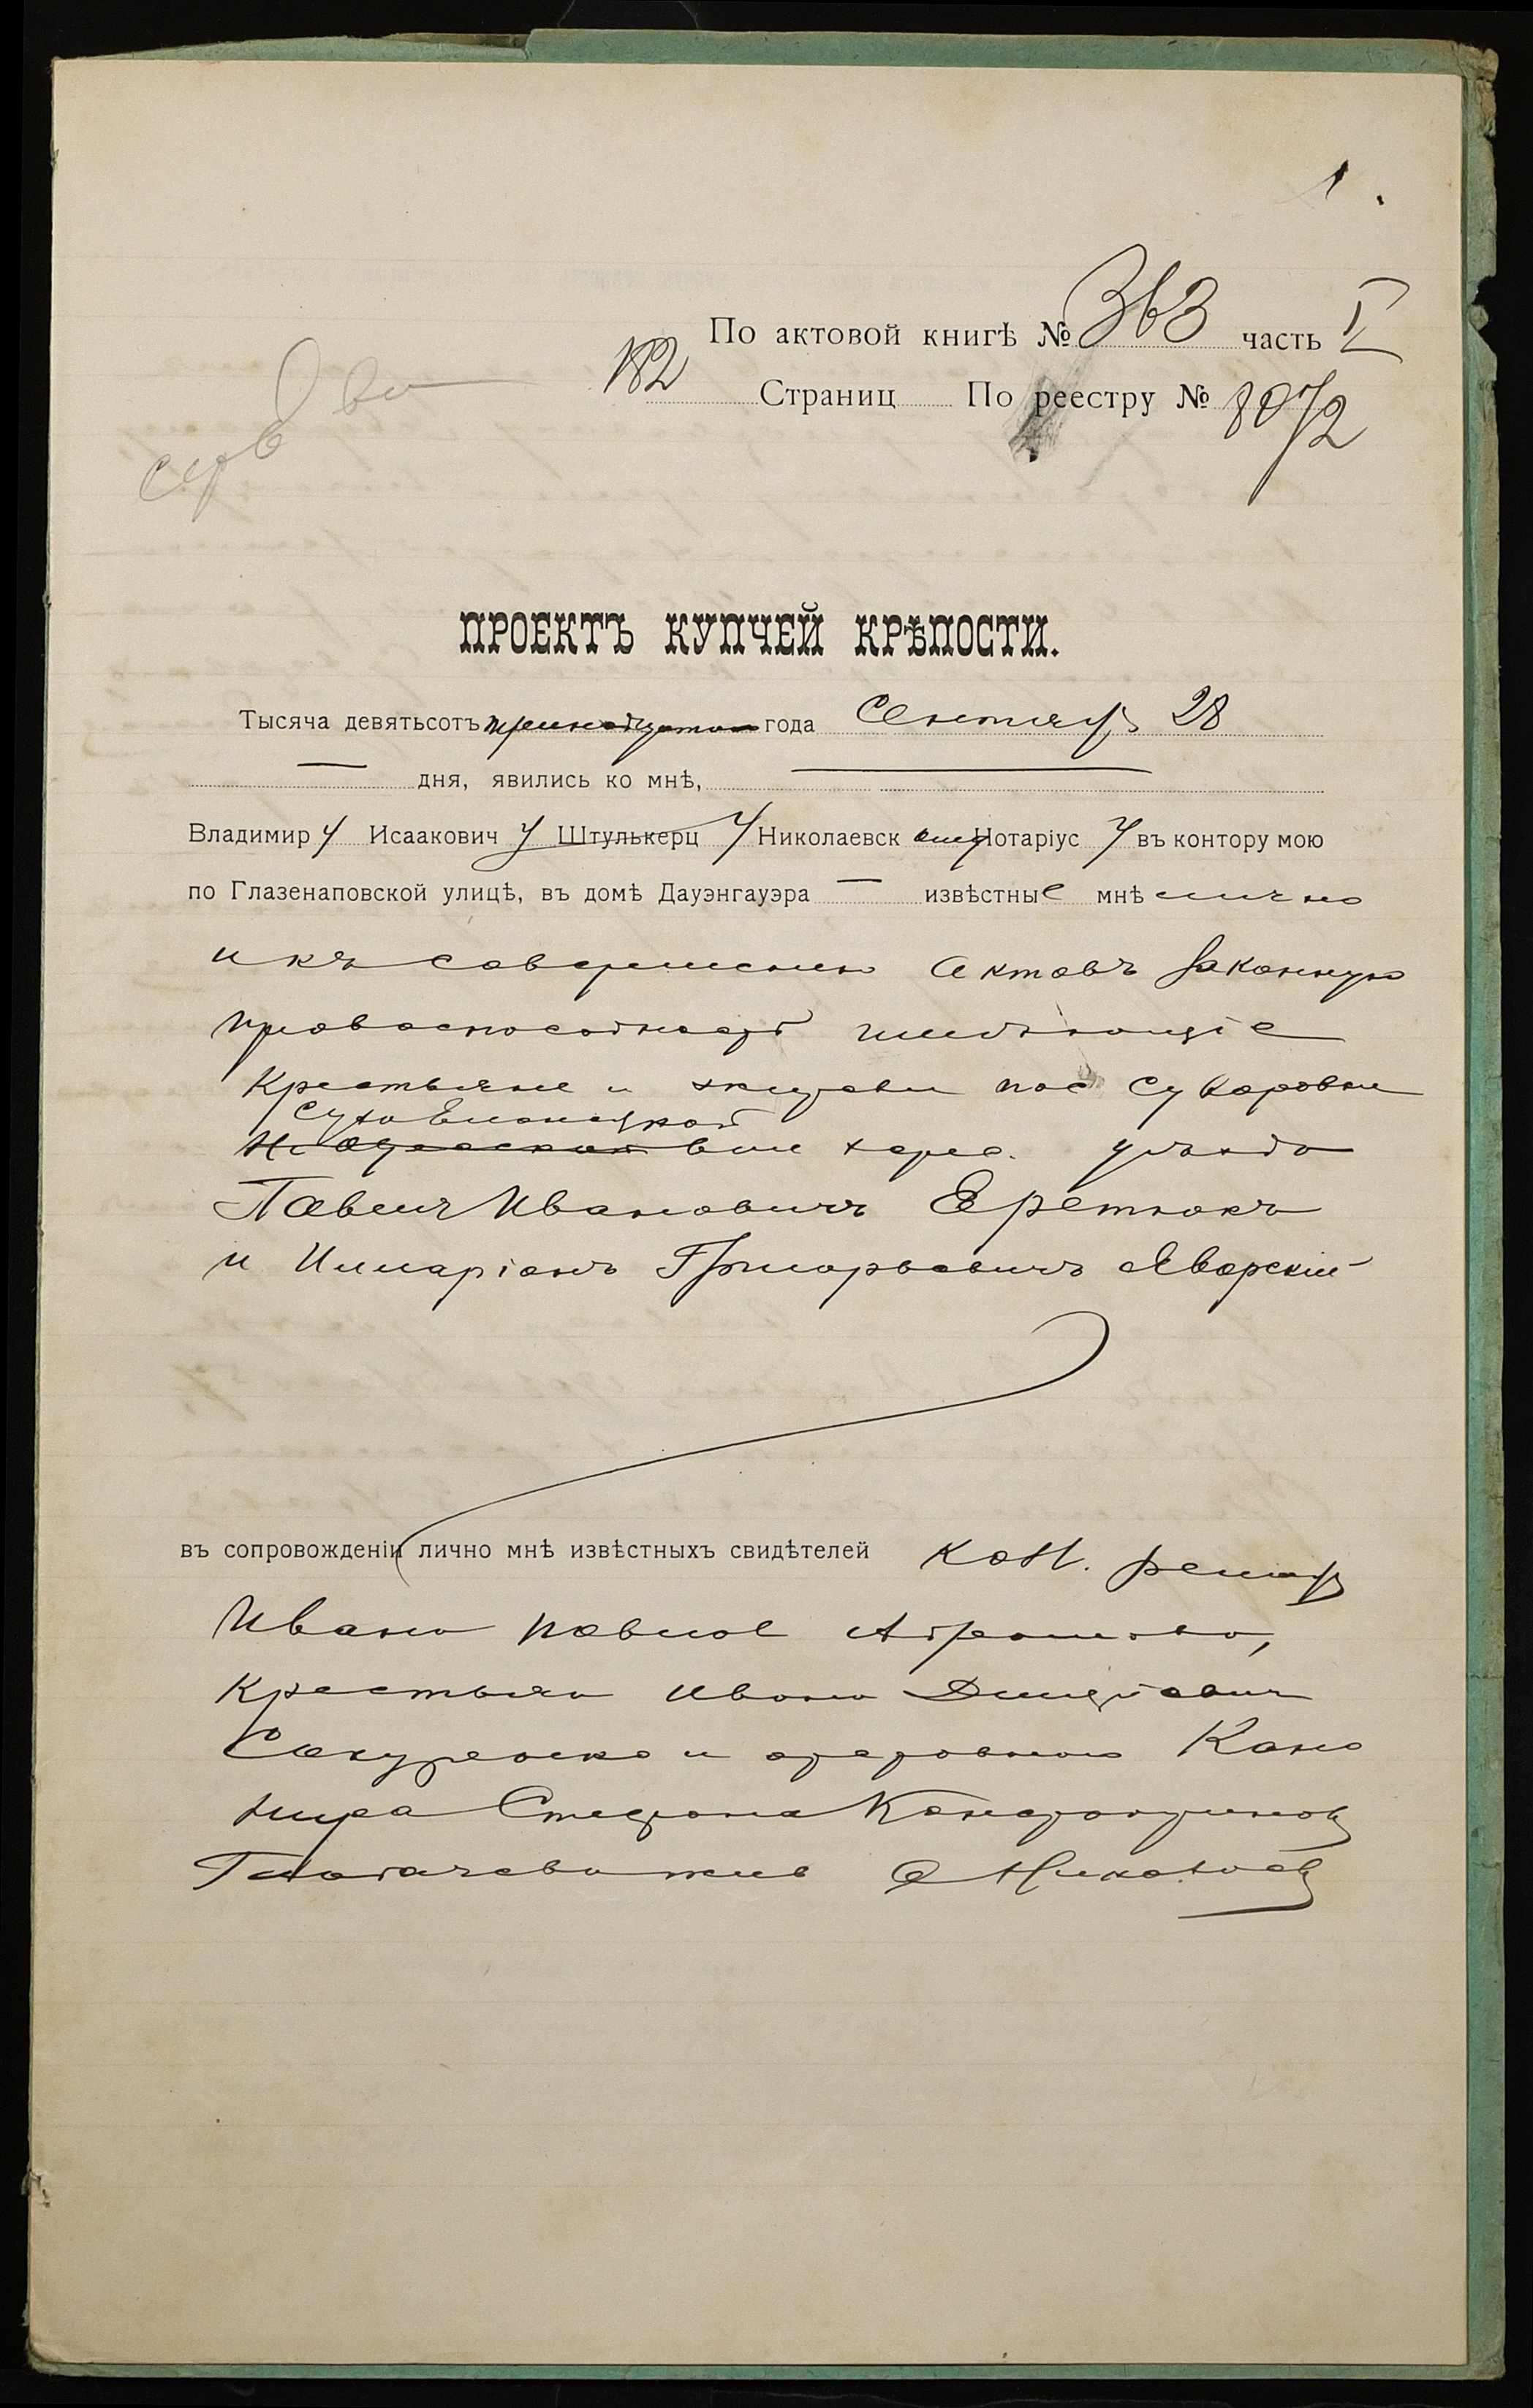 1.
По актовой книгѣ № 363 часть I
182 Страниц По реестру № 8072
ПРОЕКТЪ КУПЧЕЙ КРѢПОСТИ.
Тысяча девятьсотъ тринадцатого года Сентября 28
дня, явились ко мнѣ,
Владимиру Исааковичу Штулькерцу Николаевскому Нотаріусу въ контору мою
по Глазенаповской улицѣ, въ домѣ Дауэнгауэра извѣстные мнѣ лично
и къ совершенію актовъ законную
правоспособность имѣющіе
Крестьяне и
Сухо Еланецкой
вол Херс. уѣзда
Павелъ Ивановичъ Еретнокъ
и Илларіонъ Григорьевичъ Яворскій
въ сопровожденіи лично мнѣ извѣстныхъ свидѣтелей Кол. регистр
Ивана Павлов
Крестьян Ивана
и Кано
нира Стефана Константинов
жив в Николаев